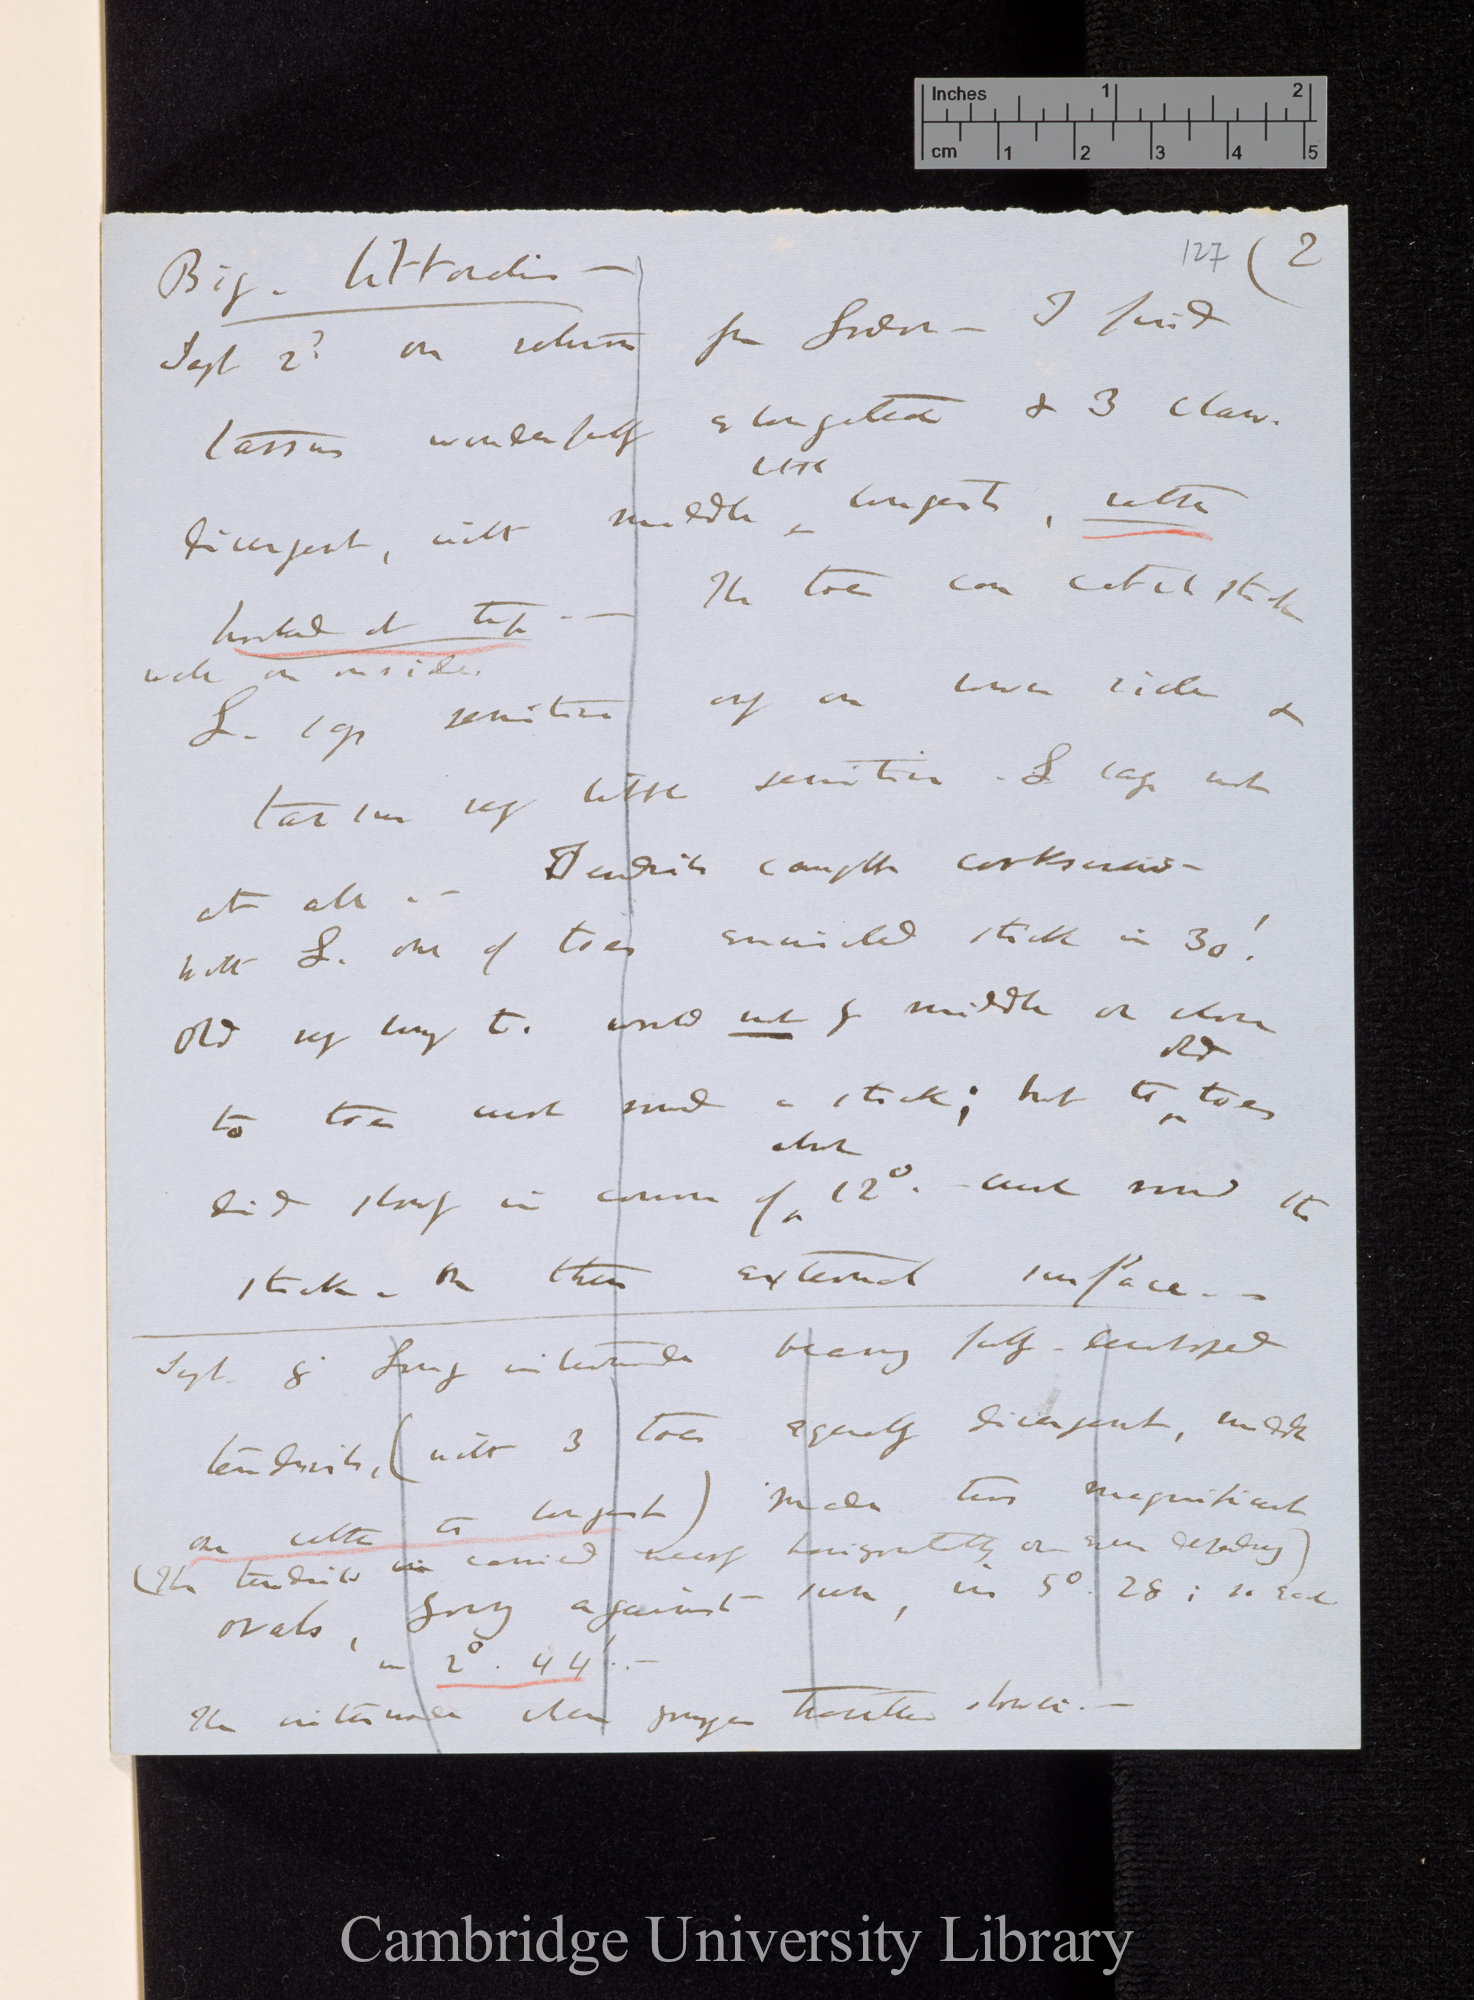 Inches 1 2
cm 1 2 3 4 5
127 (2
Big. littoralis —
Sept 2d on return fr London — I find
tarsus wonderfully elongated & 3 claws.
little
divergent, with middle longest, rather
hooked at tip. — The toes can catch stick
well on inside.
L. leg sensitive only on lower side &
tarsus very little sensitive. L leg not
at all. — Tendrils caught corkscrews —
with L. one of toes encircled stick in 30'.
Old very long t. would not by middle or close
old
to toes curl round a stick; but the toes
did slowly in course of 12°. curl round the
about
stick. on their external surface. —
Sept. 8' Young internode bearing fully-developed
tendrils, (with 3 toes equally divergent, middle
one rather the longest) made two magnificent
(The tendrils carried nearly horizontally or even depending)
ovals, going against sun, in 5°. 28; so each
in 2°. 44'. —
The internode when younger travelled slower. —
Cambridge University Library